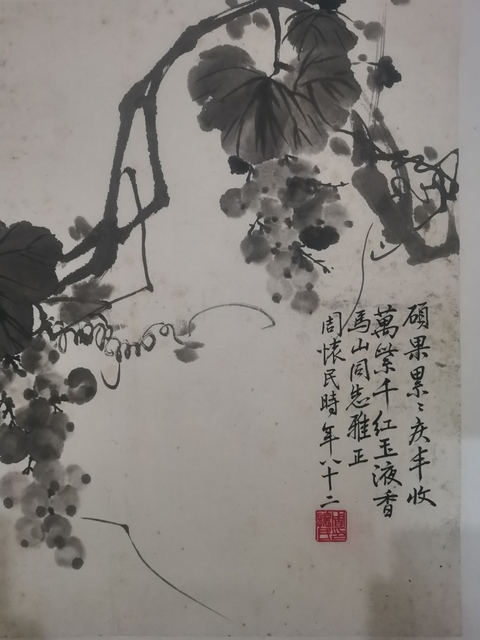 碩果累〻庆丰收
萬紫千红玉液香
馬山同志雅正
周懷民時年八十二